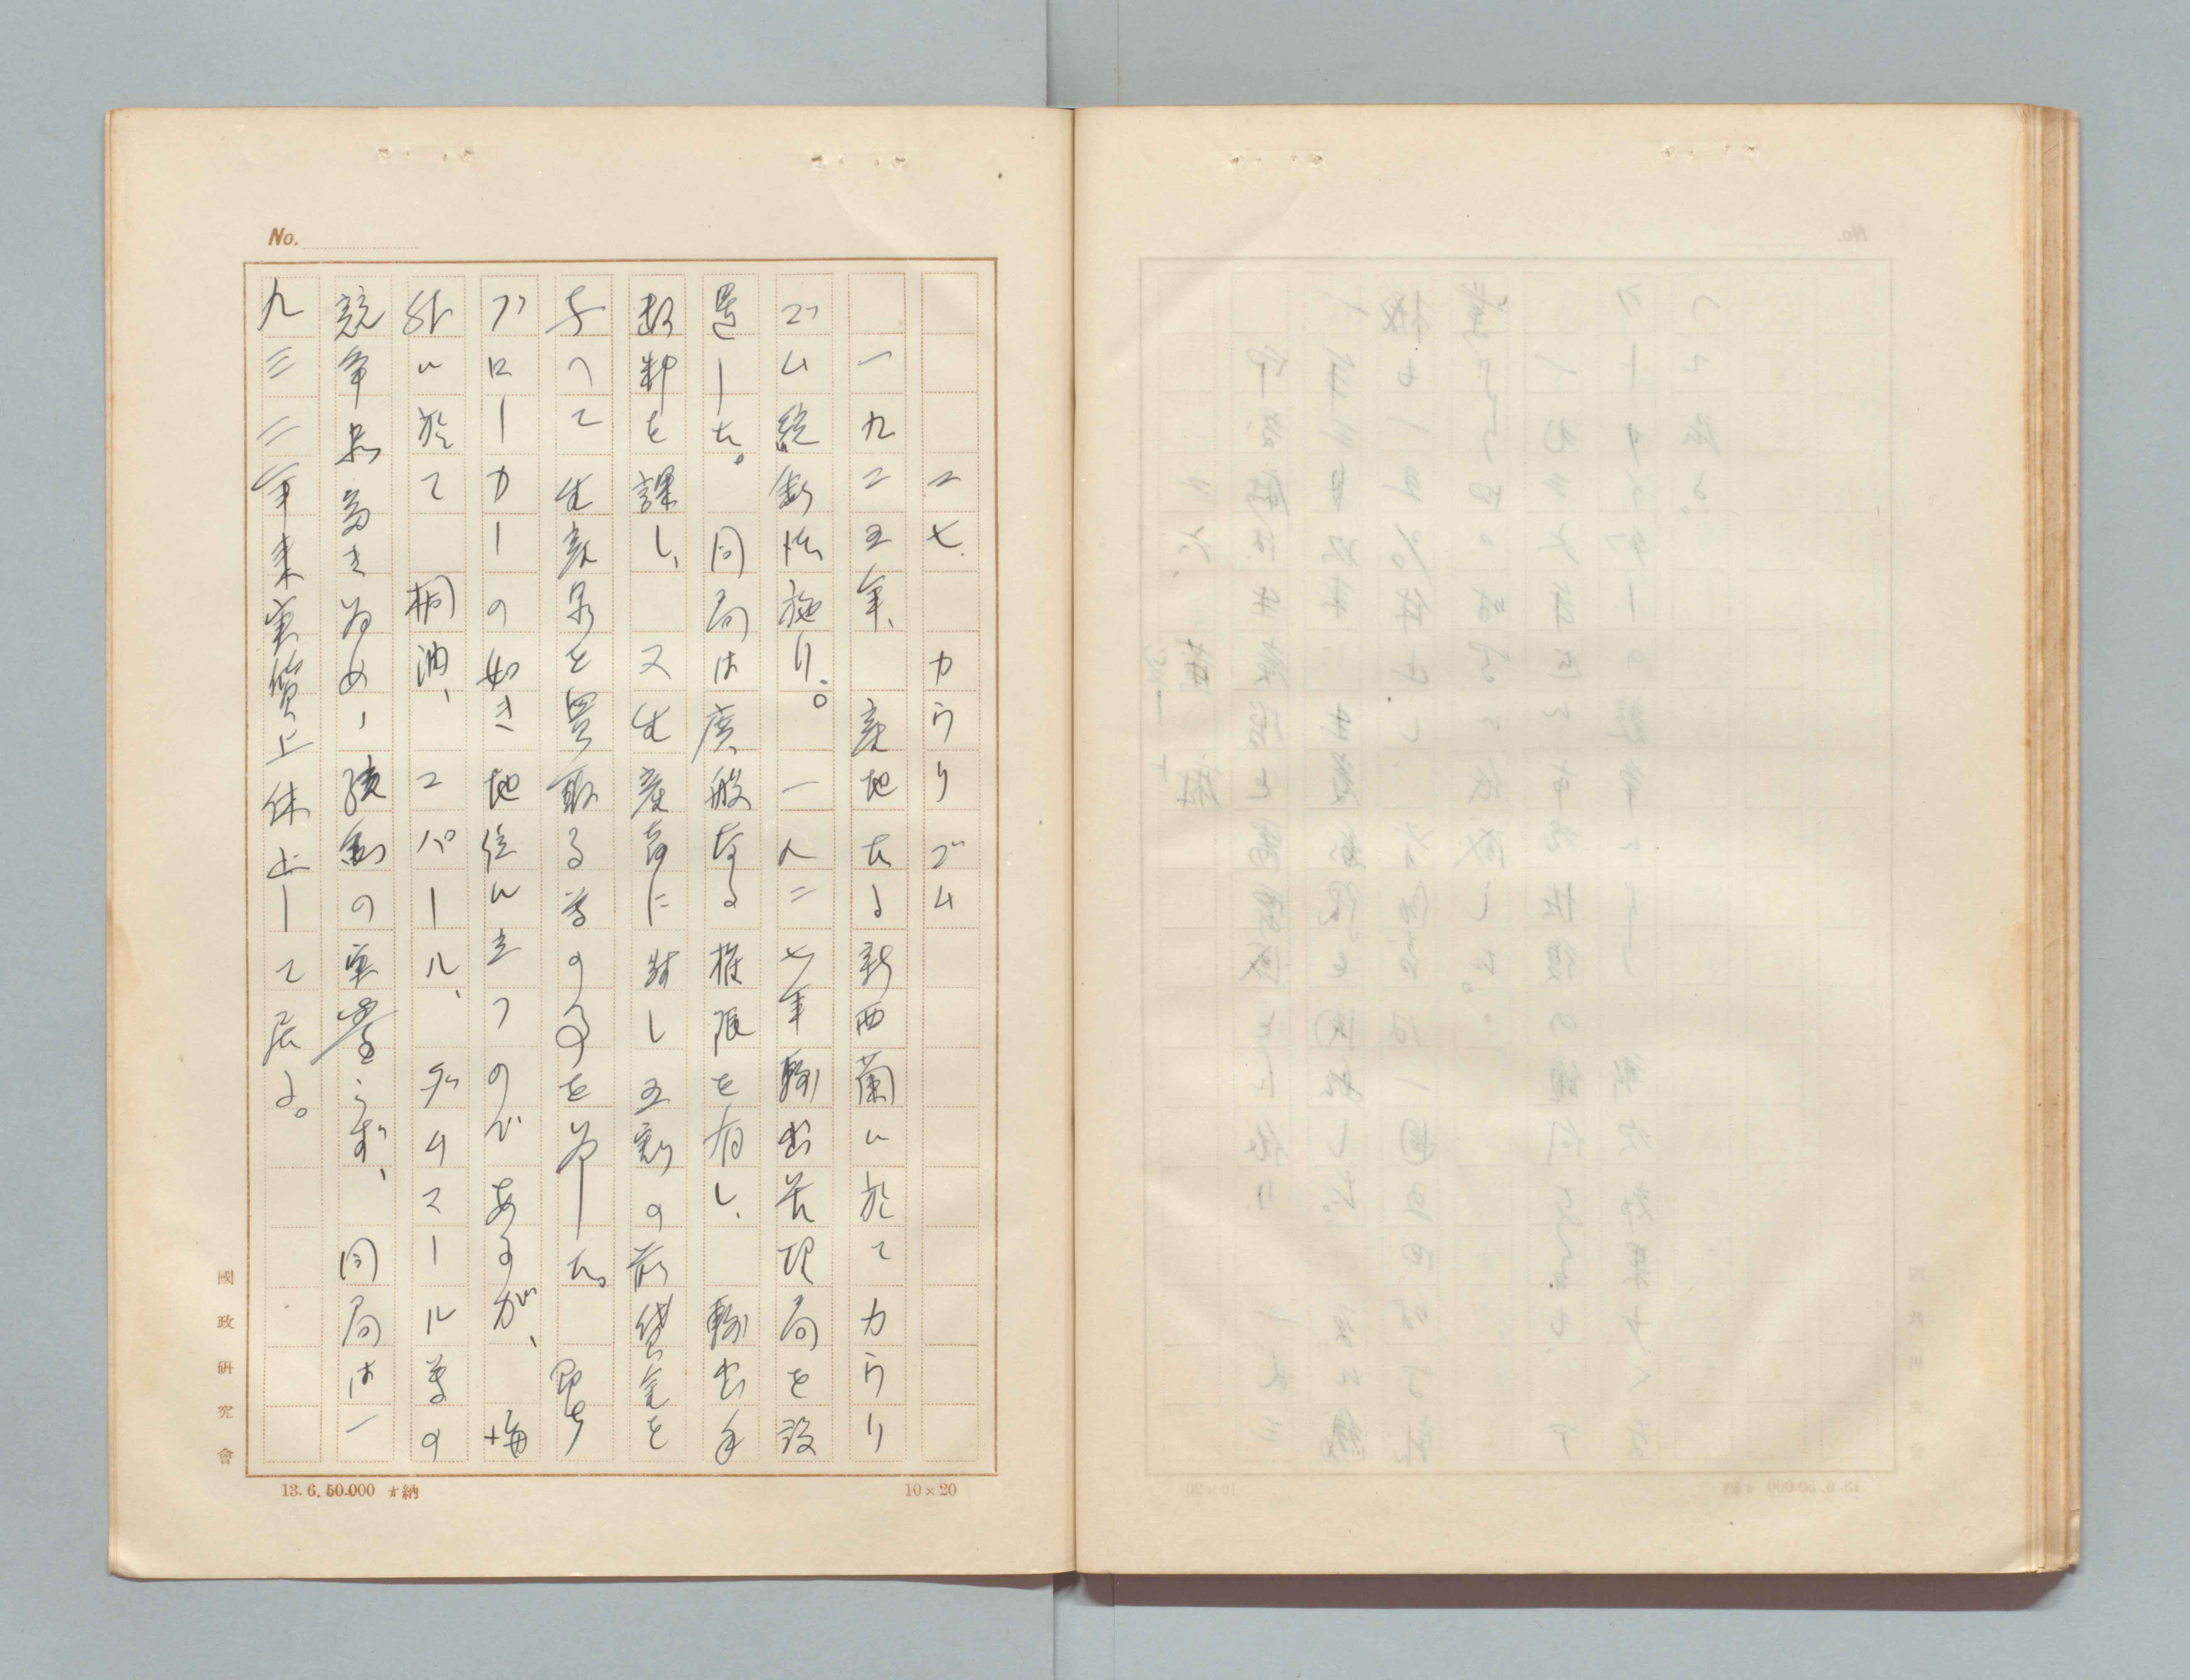 No.
二七. カウリゴム
一九二五年、産地たる新西蘭に於てカウリ
ゴム統制法施行。一九二七年輸出管理局を設
置した。同局は広般なる権限を有し、輸出手
数料を課し、又生産者に対し五割の前貸金を
与へて生産品を買取る等の事を為した。即ち
ブローカーの如き地位に立つのであるが、海
外に於て桐油、コパール、ダムマール等の
競争品多き為め、統制の実挙らず、同局は一
九三二年来実質上休止して居る。
國政研究會
13.6.50.000 納
10×20